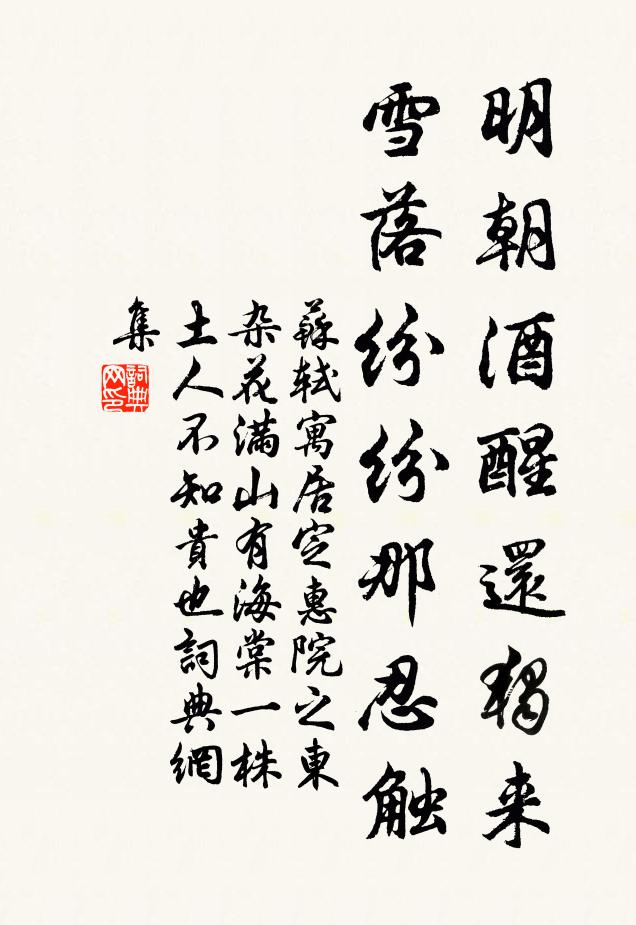 明朝酒醒還独来
雪落紛紛那忍触
蘇軾寓居定惠院之東
杂花满山有海棠一株
土人不知貴也詞典網
集
詞典网印